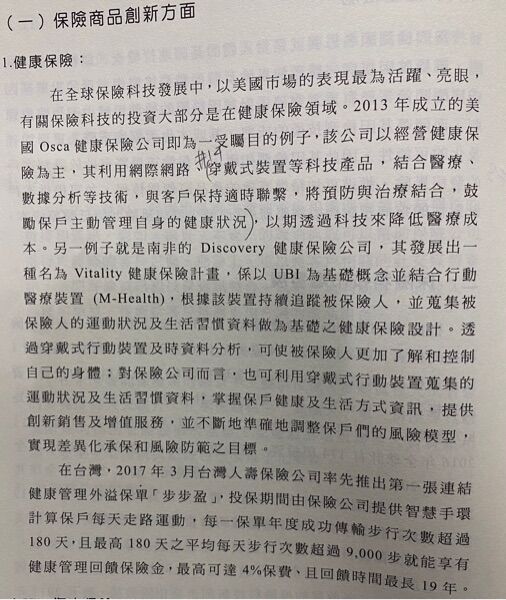 （一）保險商品創新方面
1.健康保險：
在全球保險科技發展中，以美國市場的表現最為活躍、亮眼，
有關保險科技的投資大部分是在健康保險領域。2013 年成立的美
國 Osca 健康保險公司即為一受矚目的例子，該公司以經營健康保
險為主，其利用網際網路、穿戴式裝置等科技產品，結合醫療、
數據分析等技術，與客戶保持適時聯繫，將預防與治療結合，鼓
勵保戶主動管理自身的健康狀況，以期透過科技來降低醫療成
本。另一例子就是南非的 Discovery 健康保險公司，其發展出一
種名為 Vitality 健康保險計畫，係以 UBI 為基礎概念並結合行動
醫療裝置 (M-Health)，根據該裝置持續追蹤被保險人，並蒐集被
保險人的運動狀況及生活習慣資料做為基礎之健康保險設計。透
過穿戴式行動裝置及時資料分析，可使被保險人更加了解和控制
自己的身體；對保險公司而言，也可利用穿戴式行動裝置蒐集的
運動狀況及生活習慣資料，掌握保戶健康及生活方式資訊，提供
創新銷售及增值服務，並不斷地準確地調整保戶們的風險模型，
實現差異化承保和風險防範之目標。
在台灣，2017 年 3 月台灣人壽保險公司率先推出第一張連結
健康管理外溢保單「步步盈」，投保期間由保險公司提供智慧手環
計算保戶每天走路運動，每一保單年度成功傳輸步行次數超過
180 天，且最高 180 天之平均每天步行次數超過 9,000 步就能享有
健康管理回饋保險金，最高可達 4%保費、且回饋時間最長 19 年。